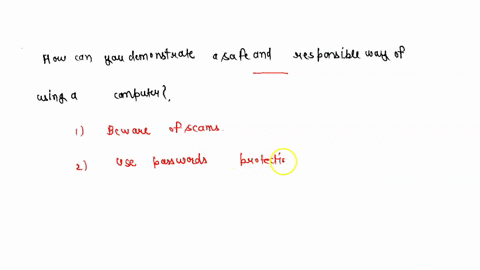 How can you demonstrate a safe and responsible way of
using a computer?
1) Beware of scams.
2) use passwords protectio